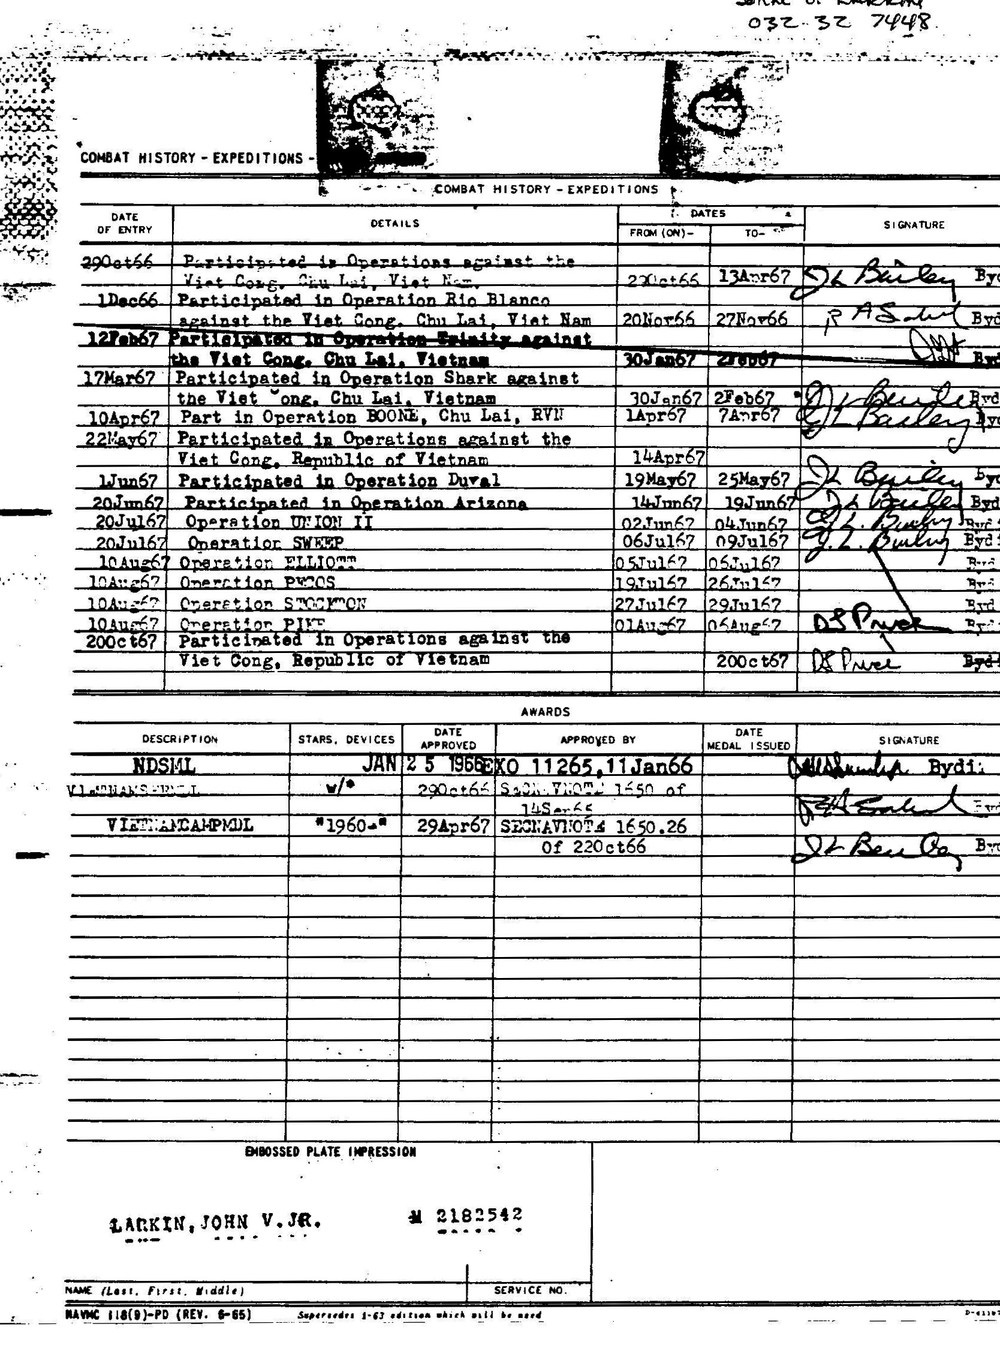 032-32 7448
COMBAT HISTORY - EXPEDITIONS -
COMBAT HISTORY - EXPEDITIONS
DATE OF ENTRY DETAILS DATES SIGNATURE
FROM (ON)- TO-
29Oct66 Participated in Operations against the
Viet Cong, Chu Lai, Viet Nam. 22Oct66 13Apr67 JL Bailey Byd
1Dec66 Participated in Operation Rio Blanco
against the Viet Cong, Chu Lai, Viet Nam 20Nov66 27Nov66 R A Byd
12Feb67 Participated in Operation Trinity against
the Viet Cong, Chu Lai, Vietnam 30Jan67 2Feb67 Byd
17Mar67 Participated in Operation Shark against
the Viet ong, Chu Lai, Vietnam 30Jan67 2Feb67 Byd
10Apr67 Part in Operation BOONE, Chu Lai, RVN 1Apr67 7Apr67 JL Bailey Byd
22May67 Participated in Operations against the
Viet Cong, Republic of Vietnam 14Apr67
1Jun67 Participated in Operation Duval 19May67 25May67 JL Bailey Byd
20Jun67 Participated in Operation Arizona 14Jun67 19Jun67 JL Bailey Byd
20Jul67 Operation UNION II 02Jun67 04Jun67 J.L. Bailey Byd
20Jul67 Operation SWEEP 06Jul67 09Jul67 J.L. Bailey Byd
10Aug67 Operation ELLIOTT 05Jul67 06Jul67 Byd
10Aug67 Operation PECOS 19Jul67 26Jul67 Byd
10Aug67 Operation STOCKTON 27Jul67 29Jul67 Byd
10Aug67 Operation PIKE 01Aug67 06Aug67 DS Price Byd
20Oct67 Participated in Operations against the
Viet Cong, Republic of Vietnam 20Oct67 DS Price Byd
AWARDS
DESCRIPTION STARS, DEVICES DATE APPROVED APPROVED BY DATE MEDAL ISSUED SIGNATURE
NDSML JAN 25 1966 EXO 11265, 11Jan66 Bydi
w/* 29Oct66 SECNAVNOTE 1650 of
14Sep66 Byd
VIETNAMCAMPMDL "1960-" 29Apr67 SECNAVNOTE 1650.26
Of 22Oct66 JL Bailey Byd
EMBOSSED PLATE IMPRESSION
LARKIN, JOHN V. JR. M 2182542
NAME (Last, First, Middle) SERVICE NO.
NAVMC 118(9)-PD (REV. 6-65) Supersedes 1-63 edition which will be used